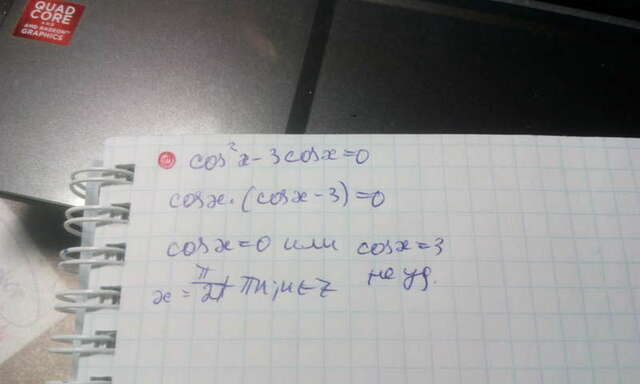 QUAD
CORE
AMD
AND RADEON™
GRAPHICS
cos²x - 3cosx = 0
cosx · (cosx - 3) = 0
cosx = 0 или cosx = 3
x = π/2 + πn; n ∈ Z не уд.